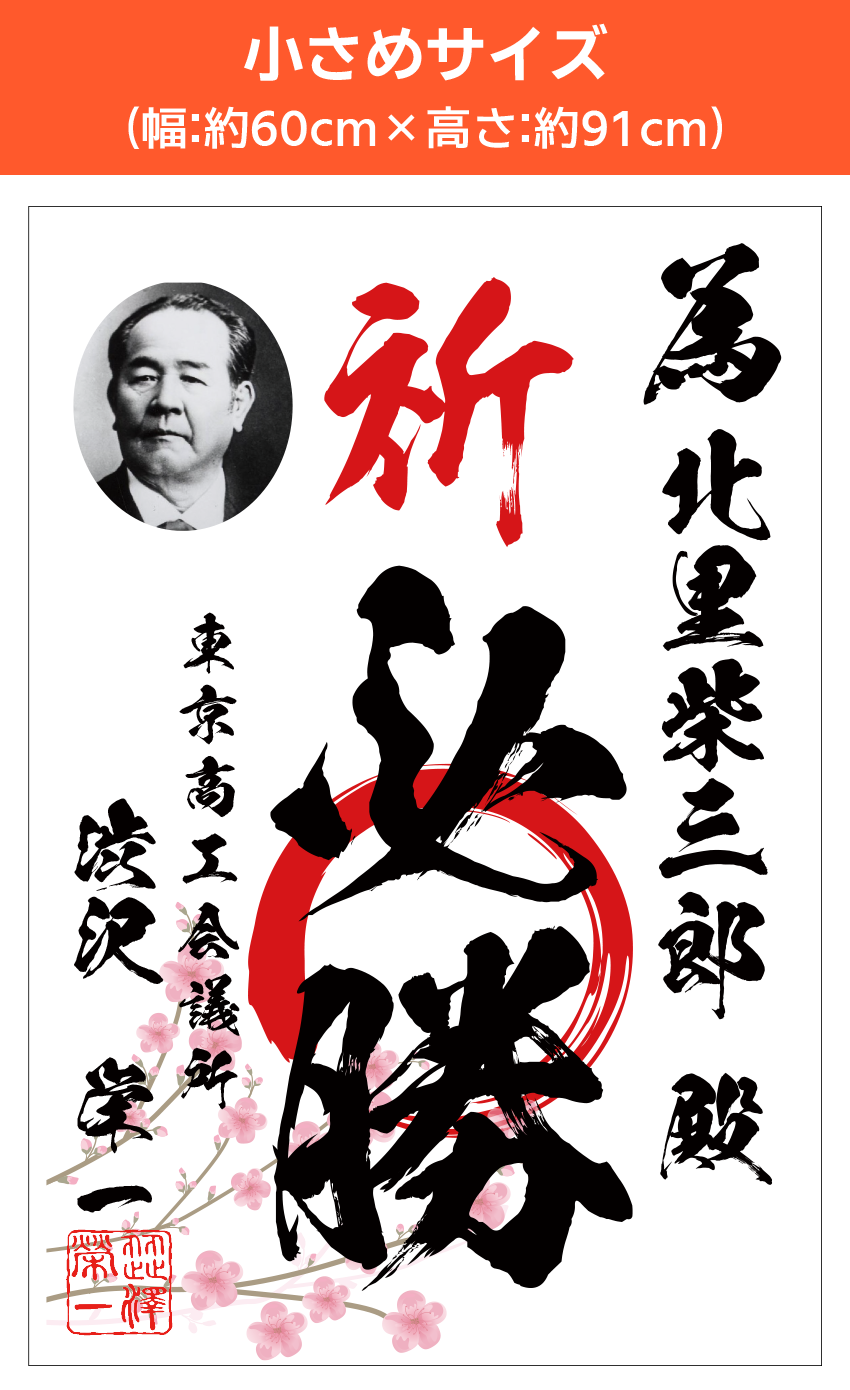 小さめサイズ
(幅:約60cm×高さ:約91cm)
為 北里柴三郎 殿
祈
必勝
東京高工会議所
渋沢 栄一
澁澤
榮一